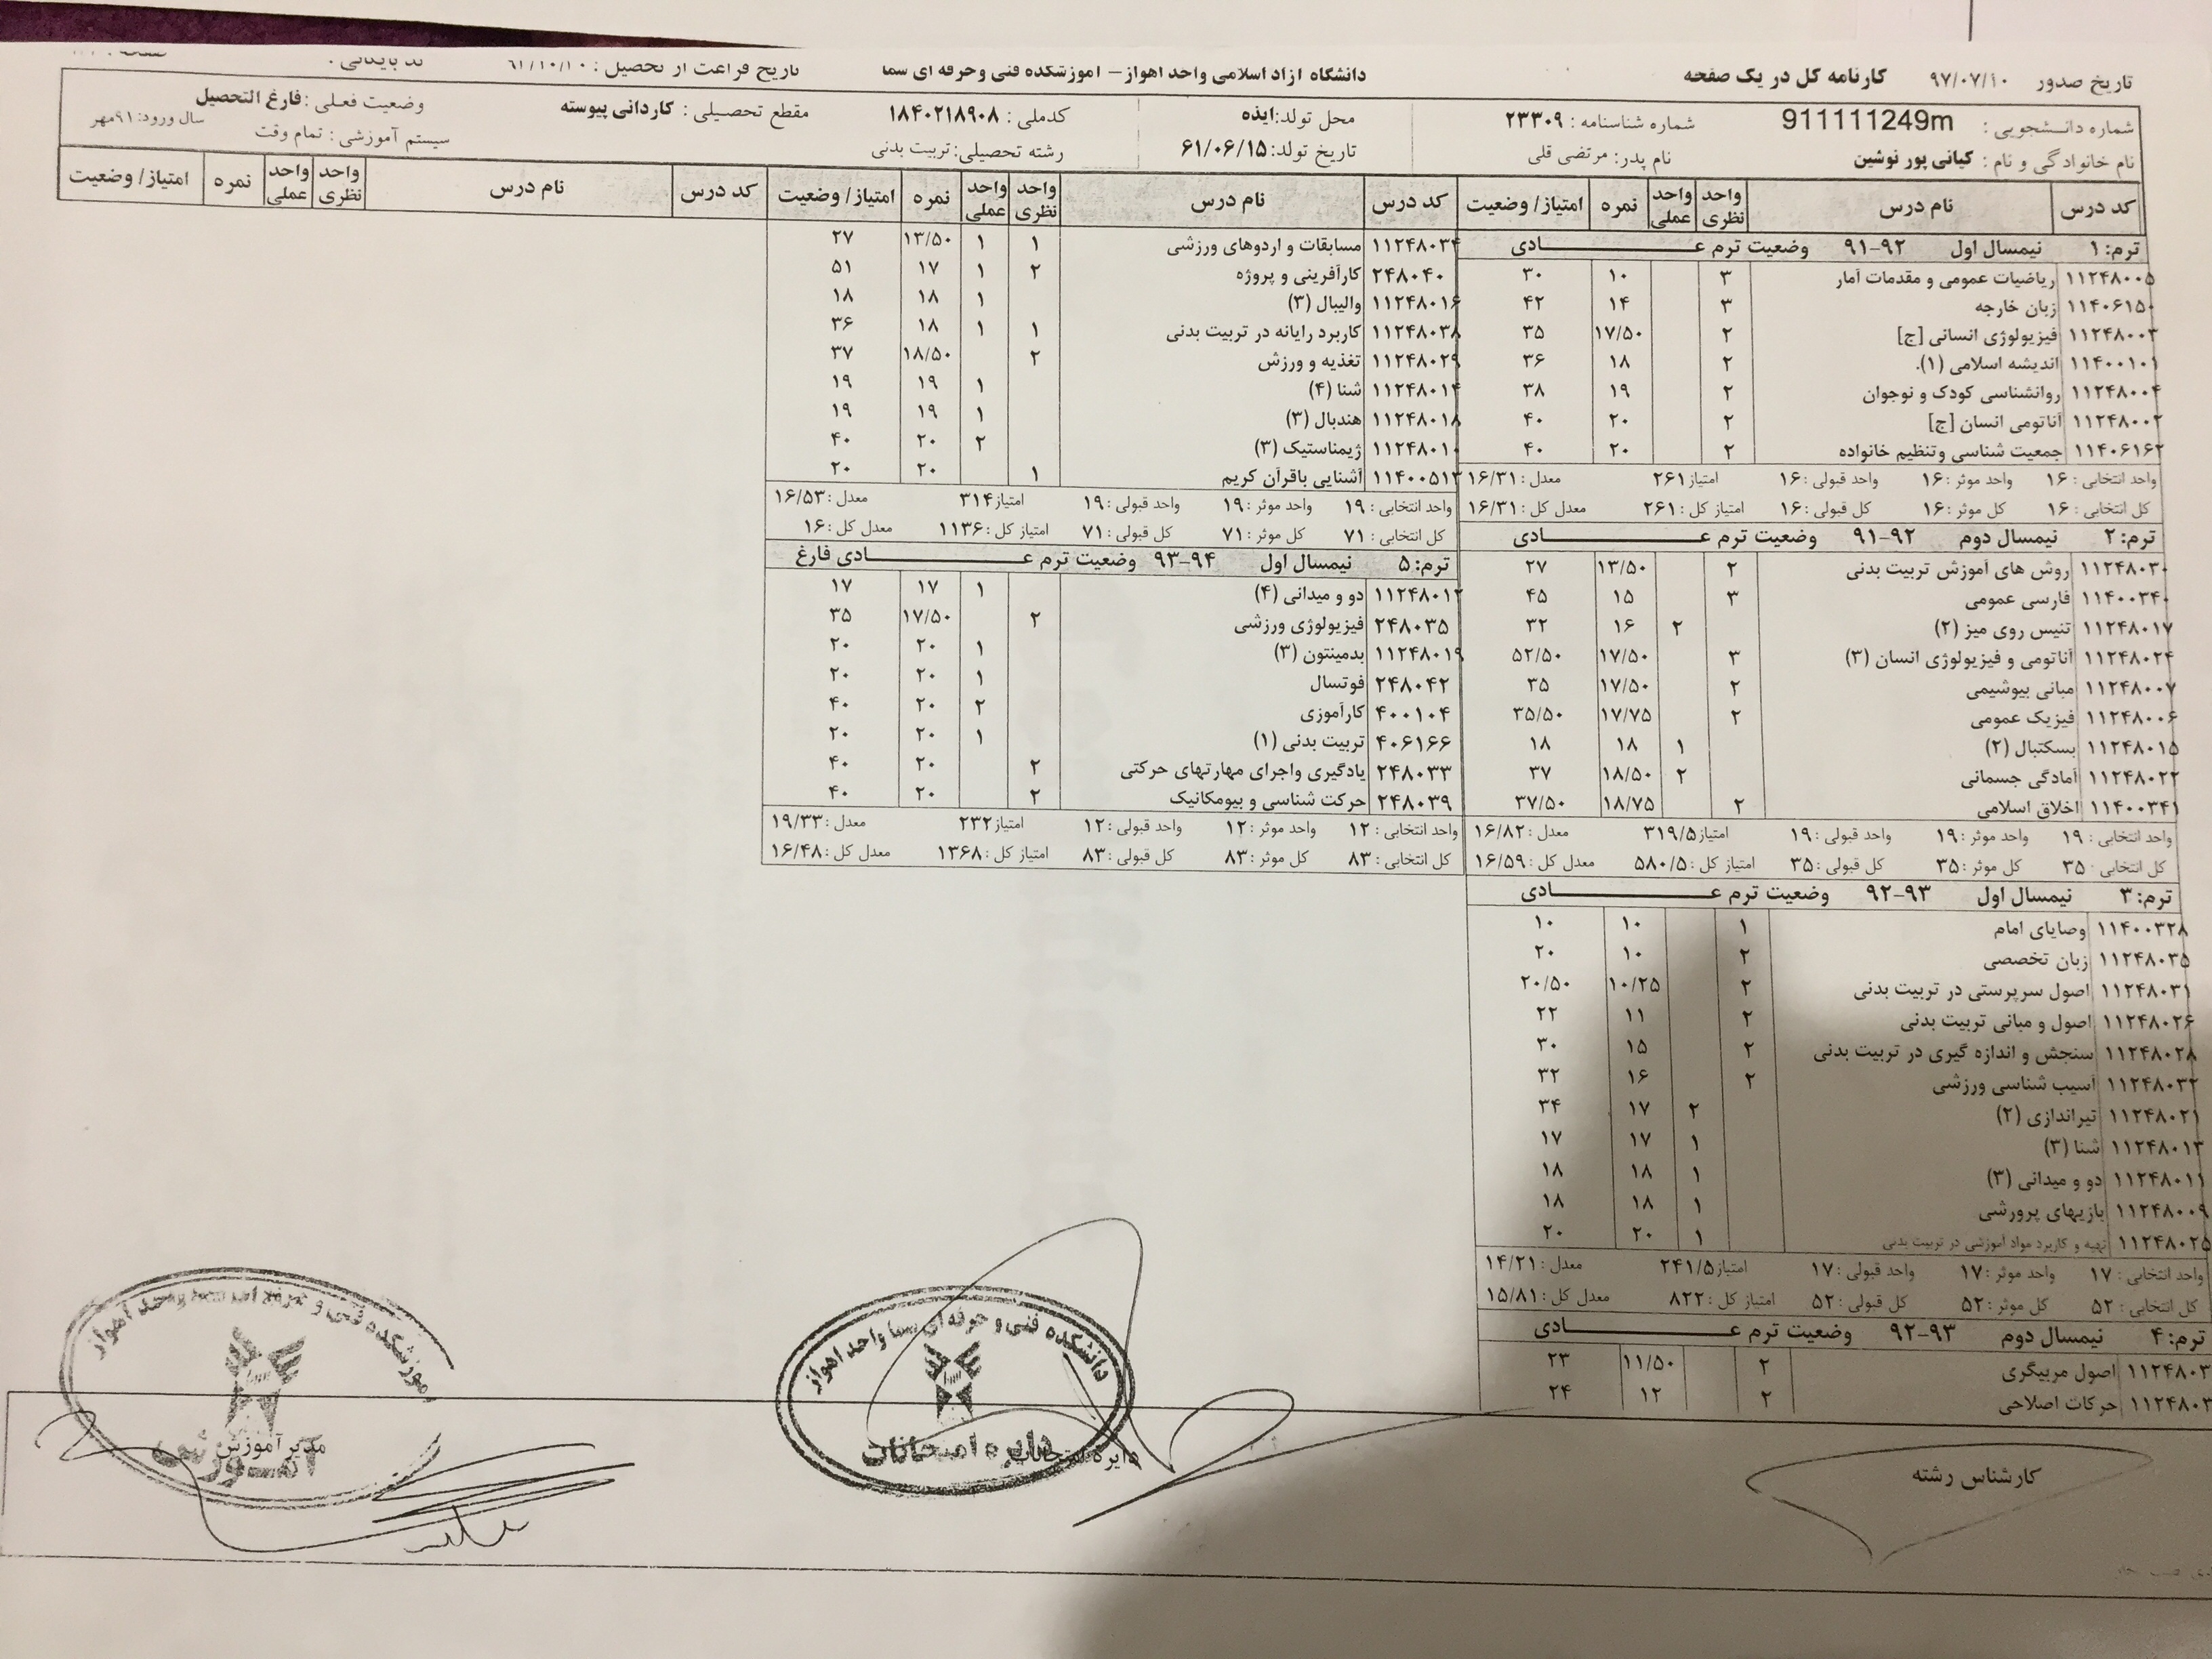 تاریخ صدور ۹۷/۰۷/۱۰ کارنامه کل در یک صفحه دانشگاه ازاد اسلامی واحد اهواز- اموزشکده فنی وحرفه ای سما تاریخ فراغت از تحصیل : ۶۱/۱۰/۱۰
شماره دانشجویی : 911111249m شماره شناسنامه : ۲۳۳۰۹ محل تولد:ایذه کدملی : ۱۸۴۰۲۱۸۹۰۸ مقطع تحصیلی : کاردانی پیوسته وضعیت فعلی :فارغ التحصیل
نام خانوادگی و نام : کیانی پور نوشین نام پدر: مرتضی قلی تاریخ تولد: ۶۱/۰۶/۱۵ رشته تحصیلی: تربیت بدنی سیستم آموزشی : تمام وقت سال ورود: ۹۱مهر
کد درس نام درس واحد نظری واحد عملی نمره امتیاز/ وضعیت
ترم: ۱ نیمسال اول ۹۲-۹۱ وضعیت ترم عادی
۱۱۲۴۸۰۰۵ ریاضیات عمومی و مقدمات آمار ۳ ۱۰ ۳۰
۱۱۴۰۶۱۵۰ زبان خارجه ۳ ۱۴ ۴۲
۱۱۲۴۸۰۰۳ فیزیولوژی انسانی [ج] ۲ ۱۷/۵۰ ۳۵
۱۱۴۰۰۱۰۱ اندیشه اسلامی (۱). ۲ ۱۸ ۳۶
۱۱۲۴۸۰۰۴ روانشناسی کودک و نوجوان ۲ ۱۹ ۳۸
۱۱۲۴۸۰۰۲ آناتومی انسان [ج] ۲ ۲۰ ۴۰
۱۱۴۰۶۱۶۲ جمعیت شناسی وتنظیم خانواده ۲ ۲۰ ۴۰
واحد انتخابی : ۱۶ واحد موثر : ۱۶ واحد قبولی : ۱۶ امتیاز ۲۶۱ معدل : ۱۶/۳۱
کل انتخابی : ۱۶ کل موثر : ۱۶ کل قبولی : ۱۶ امتیاز کل : ۲۶۱ معدل کل : ۱۶/۳۱
ترم: ۲ نیمسال دوم ۹۲-۹۱ وضعیت ترم عادی
۱۱۲۴۸۰۳۰ روش های آموزش تربیت بدنی ۲ ۱۳/۵۰ ۲۷
۱۱۴۰۰۳۴۰ فارسی عمومی ۳ ۱۵ ۴۵
۱۱۲۴۸۰۱۷ تنیس روی میز (۲) ۲ ۱۶ ۳۲
۱۱۲۴۸۰۲۴ آناتومی و فیزیولوژی انسان (۳) ۳ ۱۷/۵۰ ۵۲/۵۰
۱۱۲۴۸۰۰۷ مبانی بیوشیمی ۲ ۱۷/۵۰ ۳۵
۱۱۲۴۸۰۰۶ فیزیک عمومی ۲ ۱۷/۷۵ ۳۵/۵۰
۱۱۲۴۸۰۱۵ بسکتبال (۲) ۱ ۱۸ ۱۸
۱۱۲۴۸۰۲۲ آمادگی جسمانی ۲ ۱۸/۵۰ ۳۷
۱۱۴۰۰۳۴۱ اخلاق اسلامی ۲ ۱۸/۷۵ ۳۷/۵۰
واحد انتخابی : ۱۹ واحد موثر : ۱۹ واحد قبولی : ۱۹ امتیاز ۳۱۹/۵ معدل : ۱۶/۸۲
کل انتخابی : ۳۵ کل موثر : ۳۵ کل قبولی : ۳۵ امتیاز کل : ۵۸۰/۵ معدل کل : ۱۶/۵۹
ترم: ۳ نیمسال اول ۹۳-۹۲ وضعیت ترم عادی
۱۱۴۰۰۳۲۸ وصایای امام ۱ ۱۰ ۱۰
۱۱۲۴۸۰۳۵ زبان تخصصی ۲ ۱۰ ۲۰
۱۱۲۴۸۰۳۱ اصول سرپرستی در تربیت بدنی ۲ ۱۰/۲۵ ۲۰/۵۰
۱۱۲۴۸۰۲۶ اصول و مبانی تربیت بدنی ۲ ۱۱ ۲۲
۱۱۲۴۸۰۲۸ سنجش و اندازه گیری در تربیت بدنی ۲ ۱۵ ۳۰
۱۱۲۴۸۰۳۲ آسیب شناسی ورزشی ۲ ۱۶ ۳۲
۱۱۲۴۸۰۲۱ تیراندازی (۲) ۲ ۱۷ ۳۴
۱۱۲۴۸۰۱۳ شنا (۳) ۱ ۱۷ ۱۷
۱۱۲۴۸۰۱۱ دو و میدانی (۳) ۱ ۱۸ ۱۸
۱۱۲۴۸۰۰۹ بازیهای پرورشی ۱ ۱۸ ۱۸
۱۱۲۴۸۰۲۵ تهیه و کاربرد مواد آموزشی در تربیت بدنی ۱ ۲۰ ۲۰
واحد انتخابی : ۱۷ واحد موثر : ۱۷ واحد قبولی : ۱۷ امتیاز ۲۴۱/۵ معدل : ۱۴/۲۱
کل انتخابی : ۵۲ کل موثر : ۵۲ کل قبولی : ۵۲ امتیاز کل : ۸۲۲ معدل کل : ۱۵/۸۱
ترم: ۴ نیمسال دوم ۹۳-۹۲ وضعیت ترم عادی
۱۱۲۴۸۰۳ اصول مربیگری ۲ ۱۱/۵۰ ۲۳
۱۱۲۴۸۰۳ حرکات اصلاحی ۲ ۱۲ ۲۴
کد درس نام درس واحد نظری واحد عملی نمره امتیاز/ وضعیت
۱۱۲۴۸۰۳۴ مسابقات و اردوهای ورزشی ۱ ۱ ۱۳/۵۰ ۲۷
۲۴۸۰۴۰ کارآفرینی و پروژه ۲ ۱ ۱۷ ۵۱
۱۱۲۴۸۰۱۶ والیبال (۳) ۱ ۱۸ ۱۸
۱۱۲۴۸۰۳۸ کاربرد رایانه در تربیت بدنی ۱ ۱ ۱۸ ۳۶
۱۱۲۴۸۰۲۹ تغذیه و ورزش ۲ ۱۸/۵۰ ۳۷
۱۱۲۴۸۰۱۴ شنا (۴) ۱ ۱۹ ۱۹
۱۱۲۴۸۰۱۸ هندبال (۳) ۱ ۱۹ ۱۹
۱۱۲۴۸۰۱۰ ژیمناستیک (۳) ۲ ۲۰ ۴۰
۱۱۴۰۰۵۱۳ آشنایی باقرآن کریم ۱ ۲۰ ۲۰
واحد انتخابی : ۱۹ واحد موثر : ۱۹ واحد قبولی : ۱۹ امتیاز ۳۱۴ معدل : ۱۶/۵۳
کل انتخابی : ۷۱ کل موثر : ۷۱ کل قبولی : ۷۱ امتیاز کل : ۱۱۳۶ معدل کل : ۱۶
ترم: ۵ نیمسال اول ۹۴-۹۳ وضعیت ترم عادی فارغ
۱۱۲۴۸۰۱۲ دو و میدانی (۴) ۱ ۱۷ ۱۷
۲۴۸۰۳۵ فیزیولوژی ورزشی ۲ ۱۷/۵۰ ۳۵
۱۱۲۴۸۰۱۹ بدمینتون (۳) ۱ ۲۰ ۲۰
۲۴۸۰۴۲ فوتسال ۱ ۲۰ ۲۰
۴۰۰۱۰۴ کارآموزی ۲ ۲۰ ۴۰
۴۰۶۱۶۶ تربیت بدنی (۱) ۱ ۲۰ ۲۰
۲۴۸۰۳۳ یادگیری واجرای مهارتهای حرکتی ۲ ۲۰ ۴۰
۲۴۸۰۳۹ حرکت شناسی و بیومکانیک ۲ ۲۰ ۴۰
واحد انتخابی : ۱۲ واحد موثر : ۱۲ واحد قبولی : ۱۲ امتیاز ۲۳۲ معدل : ۱۹/۳۳
کل انتخابی : ۸۳ کل موثر : ۸۳ کل قبولی : ۸۳ امتیاز کل : ۱۳۶۸ معدل کل : ۱۶/۴۸
کد درس نام درس واحد نظری واحد عملی نمره امتیاز/ وضعیت
کارشناس رشته
دانشکده فنی و حرفه ای سما واحد اهواز
دایره امتحانات
دایره امتحانات
موزشکده فنی و حرفه ای سما واحد اهواز
مدیر آموزش